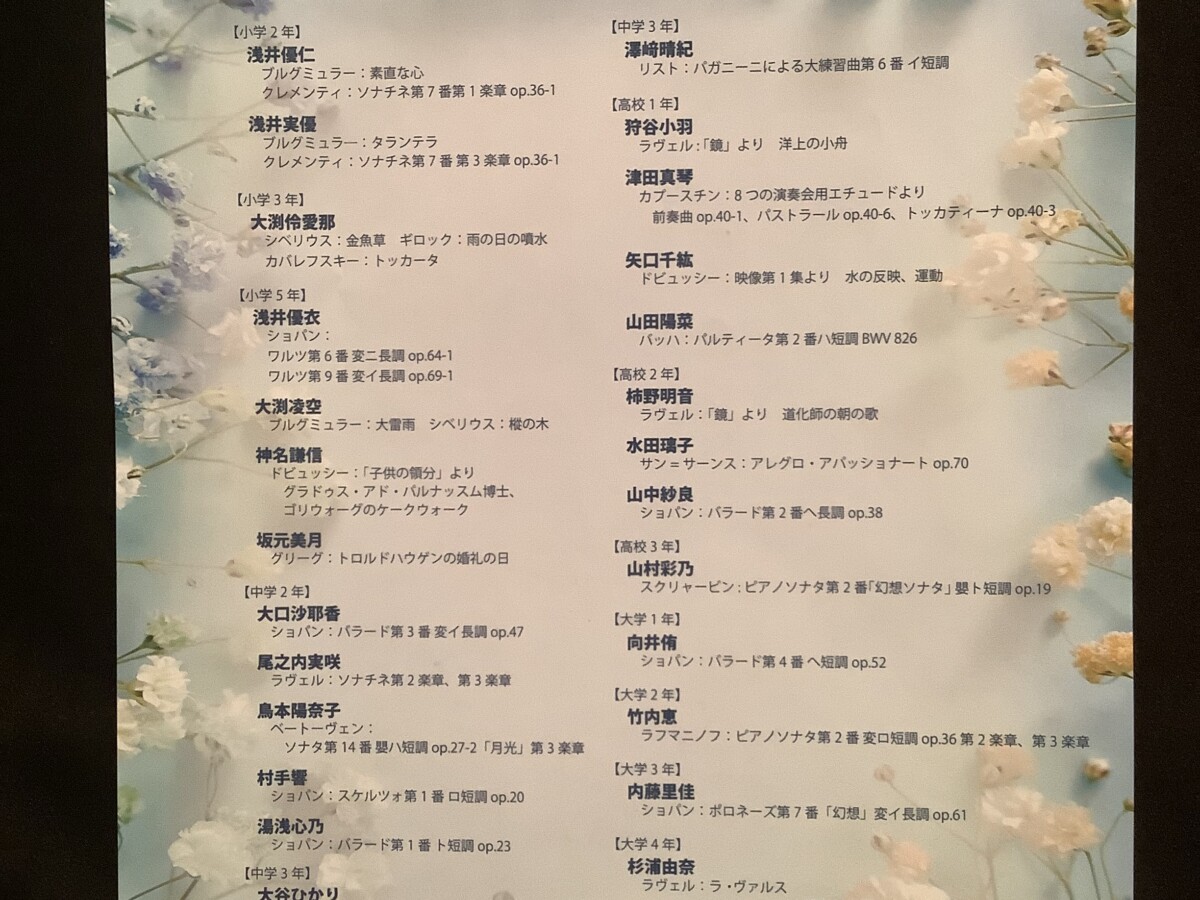 【小学2年】
浅井優仁
ブルグミュラー：素直な心
クレメンティ：ソナチネ第7番第1楽章 op.36-1
浅井実優
ブルグミュラー：タランテラ
クレメンティ：ソナチネ第7番 第3楽章 op.36-1
【小学3年】
大渕伶愛那
シベリウス：金魚草　ギロック：雨の日の噴水
カバレフスキー：トッカータ
【小学5年】
浅井優衣
ショパン：
ワルツ第6番 変ニ長調 op.64-1
ワルツ第9番 変イ長調 op.69-1
大渕凌空
ブルグミュラー：大雷雨　シベリウス：樅の木
神名謙信
ドビュッシー：「子供の領分」より
グラドゥス・アド・パルナッスム博士、
ゴリウォーグのケークウォーク
坂元美月
グリーグ：トロルドハウゲンの婚礼の日
【中学2年】
大口沙耶香
ショパン：バラード第3番 変イ長調 op.47
尾之内実咲
ラヴェル：ソナチネ第2楽章、第3楽章
鳥本陽奈子
ベートーヴェン：
ソナタ第14番 嬰ハ短調 op.27-2「月光」第3楽章
村手響
ショパン：スケルツォ第1番 ロ短調 op.20
湯浅心乃
ショパン：バラード第1番 ト短調 op.23
【中学3年】
大谷ひかり
【中学3年】
澤﨑晴紀
リスト：パガニーニによる大練習曲第6番 イ短調
【高校1年】
狩谷小羽
ラヴェル：「鏡」より　洋上の小舟
津田真琴
カプースチン：8つの演奏会用エチュードより
前奏曲 op.40-1、パストラール op.40-6、トッカティーナ op.40-3
矢口千紘
ドビュッシー：映像第1集より　水の反映、運動
山田陽菜
バッハ：パルティータ第2番ハ短調 BWV 826
【高校2年】
柿野明音
ラヴェル：「鏡」より　道化師の朝の歌
水田璃子
サン＝サーンス：アレグロ・アパッショナート op.70
山中紗良
ショパン：バラード第2番ヘ長調 op.38
【高校3年】
山村彩乃
スクリャービン：ピアノソナタ第2番「幻想ソナタ」嬰ト短調 op.19
【大学1年】
向井侑
ショパン：バラード第4番 ヘ短調 op.52
【大学2年】
竹内恵
ラフマニノフ：ピアノソナタ第2番 変ロ短調 op.36 第2楽章、第3楽章
【大学3年】
内藤里佳
ショパン：ポロネーズ第7番「幻想」変イ長調 op.61
【大学4年】
杉浦由奈
ラヴェル：ラ・ヴァルス